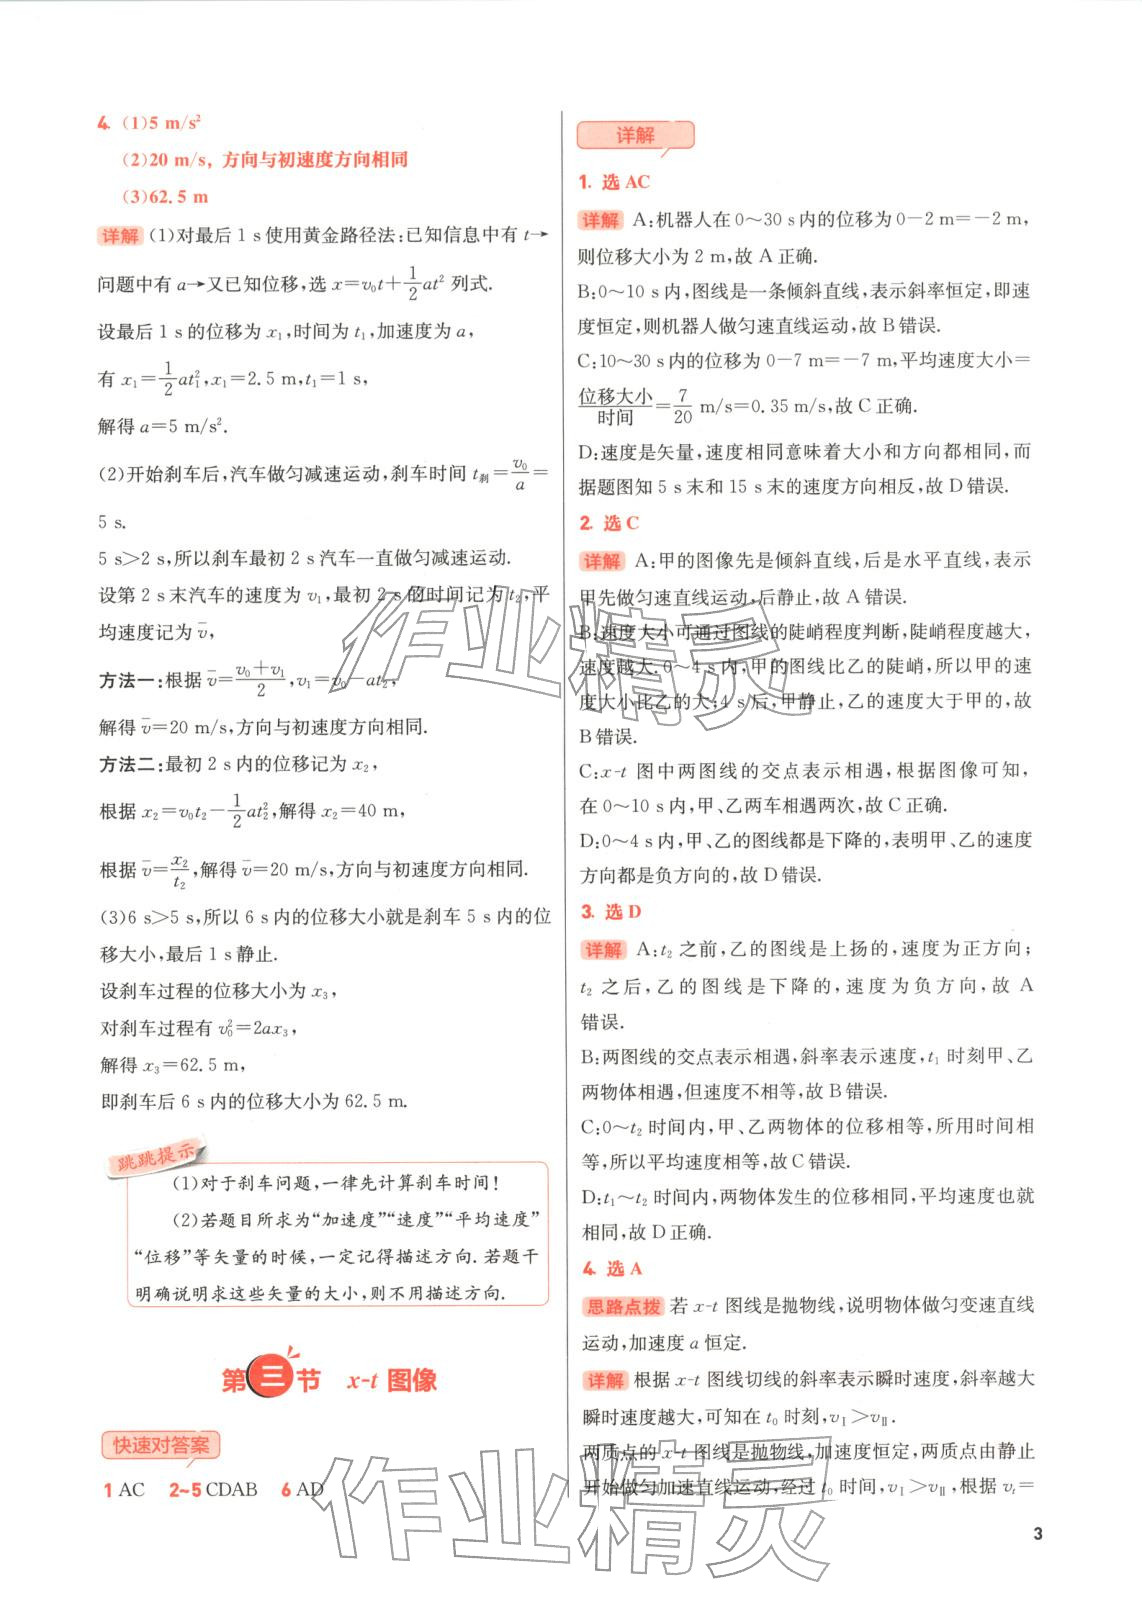 4. (1)5 m/s²
(2)20 m/s，方向与初速度方向相同
(3)62.5 m
详解 (1)对最后 1 s 使用黄金路径法：已知信息中有 t→
问题中有 a→又已知位移，选 x=v₀t+1/2at² 列式.
设最后 1 s 的位移为 x₁，时间为 t₁，加速度为 a，
有 x₁=1/2at₁²，x₁=2.5 m，t₁=1 s，
解得 a=5 m/s².
(2)开始刹车后，汽车做匀减速运动，刹车时间 t刹=v₀/a=
5 s.
5 s>2 s，所以刹车最初 2 s 汽车一直做匀减速运动.
设第 2 s 末汽车的速度为 v₁，最初 2 s 的时间记为 t₂，平
均速度记为 v̄，
方法一：根据 v̄=(v₀+v₁)/2，v₁=v₀-at₂，
解得 v̄=20 m/s，方向与初速度方向相同.
方法二：最初 2 s 内的位移记为 x₂，
根据 x₂=v₀t₂-1/2at₂²，解得 x₂=40 m，
根据 v̄=x₂/t₂，解得 v̄=20 m/s，方向与初速度方向相同.
(3)6 s>5 s，所以 6 s 内的位移大小就是刹车 5 s 内的位
移大小，最后 1 s 静止.
设刹车过程的位移大小为 x₃，
对刹车过程有 v₀²=2ax₃，
解得 x₃=62.5 m，
即刹车后 6 s 内的位移大小为 62.5 m.
跳跳提示
(1)对于刹车问题，一律先计算刹车时间！
(2)若题目所求为“加速度”“速度”“平均速度”
“位移”等矢量的时候，一定记得描述方向.若题干
明确说明求这些矢量的大小，则不用描述方向.
第三节 x-t 图像
快速对答案
1 AC 2~5 CDAB 6 AD
详解
1. 选 AC
详解 A：机器人在 0～30 s 内的位移为 0－2 m=－2 m，
则位移大小为 2 m，故 A 正确.
B：0～10 s 内，图线是一条倾斜直线，表示斜率恒定，即速
度恒定，则机器人做匀速直线运动，故 B 错误.
C：10～30 s 内的位移为 0－7 m=－7 m，平均速度大小=
位移大小/时间=7/20 m/s=0.35 m/s，故 C 正确.
D：速度是矢量，速度相同意味着大小和方向都相同，而
据题图知 5 s 末和 15 s 末的速度方向相反，故 D 错误.
2. 选 C
详解 A：甲的图像先是倾斜直线，后是水平直线，表示
甲先做匀速直线运动，后静止，故 A 错误.
B：速度大小可通过图线的陡峭程度判断，陡峭程度越大，
速度越大.0～4 s 内，甲的图线比乙的陡峭，所以甲的速
度大小比乙的大；4 s 后，甲静止，乙的速度大于甲的，故
B 错误.
C：x-t 图中两图线的交点表示相遇，根据图像可知，
在 0～10 s 内，甲、乙两车相遇两次，故 C 正确.
D：0～4 s 内，甲、乙的图线都是下降的，表明甲、乙的速度
方向都是负方向的，故 D 错误.
3. 选 D
详解 A：t₂ 之前，乙的图线是上扬的，速度为正方向；
t₂ 之后，乙的图线是下降的，速度为负方向，故 A
错误.
B：两图线的交点表示相遇，斜率表示速度，t₁ 时刻甲、乙
两物体相遇，但速度不相等，故 B 错误.
C：0～t₂ 时间内，甲、乙两物体的位移相等，所用时间相
等，所以平均速度相等，故 C 错误.
D：t₁～t₂ 时间内，两物体发生的位移相同，平均速度也就
相同，故 D 正确.
4. 选 A
思路点拨 若 x-t 图线是抛物线，说明物体做匀变速直线
运动，加速度 a 恒定.
详解 根据 x-t 图线切线的斜率表示瞬时速度，斜率越大
瞬时速度越大，可知在 t₀ 时刻，vⅠ>vⅡ.
两质点的 x-t 图线是抛物线，加速度恒定，两质点由静止
开始做匀加速直线运动，经过 t₀ 时间，vⅠ>vⅡ，根据 vₜ=
3
作业精灵
作业精灵